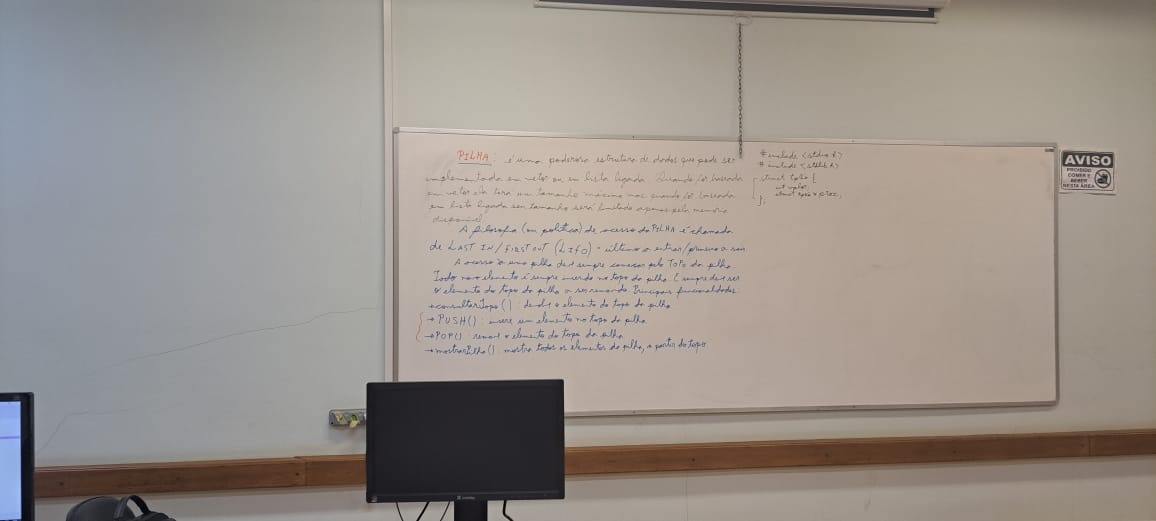 PILHA: é uma poderosa estrutura de dados que pode ser
implementada em vetor ou em lista ligada. Quando for baseada
em vetor ela terá um tamanho máximo mas quando for baseada
em lista ligada seu tamanho será limitado apenas pela memória
disponível
A filosofia (ou política) de acesso da PILHA é chamada
de LAST IN/FIRST OUT (LIFO) - último a entrar/primeiro a sair
A acesso a uma pilha deve sempre começar pelo TOPO da pilha
Todo novo elemento é sempre inserido no topo da pilha. E sempre deve ser
o elemento do topo da pilha a ser removido. Principais funcionalidades
→ consultarTopo(): devolve o elemento do topo da pilha
→ PUSH(): insere um elemento no topo da pilha
→ POP(): remove o elemento do topo da pilha
→ mostrarPilha(): mostra todos os elementos da pilha, a partir do topo.
#include <stdio.h>
#include <stdlib.h>
struct {
int valor;
struct
};
AVISO
PROIBIDO
COMER E
BEBER
NESTA ÁREA